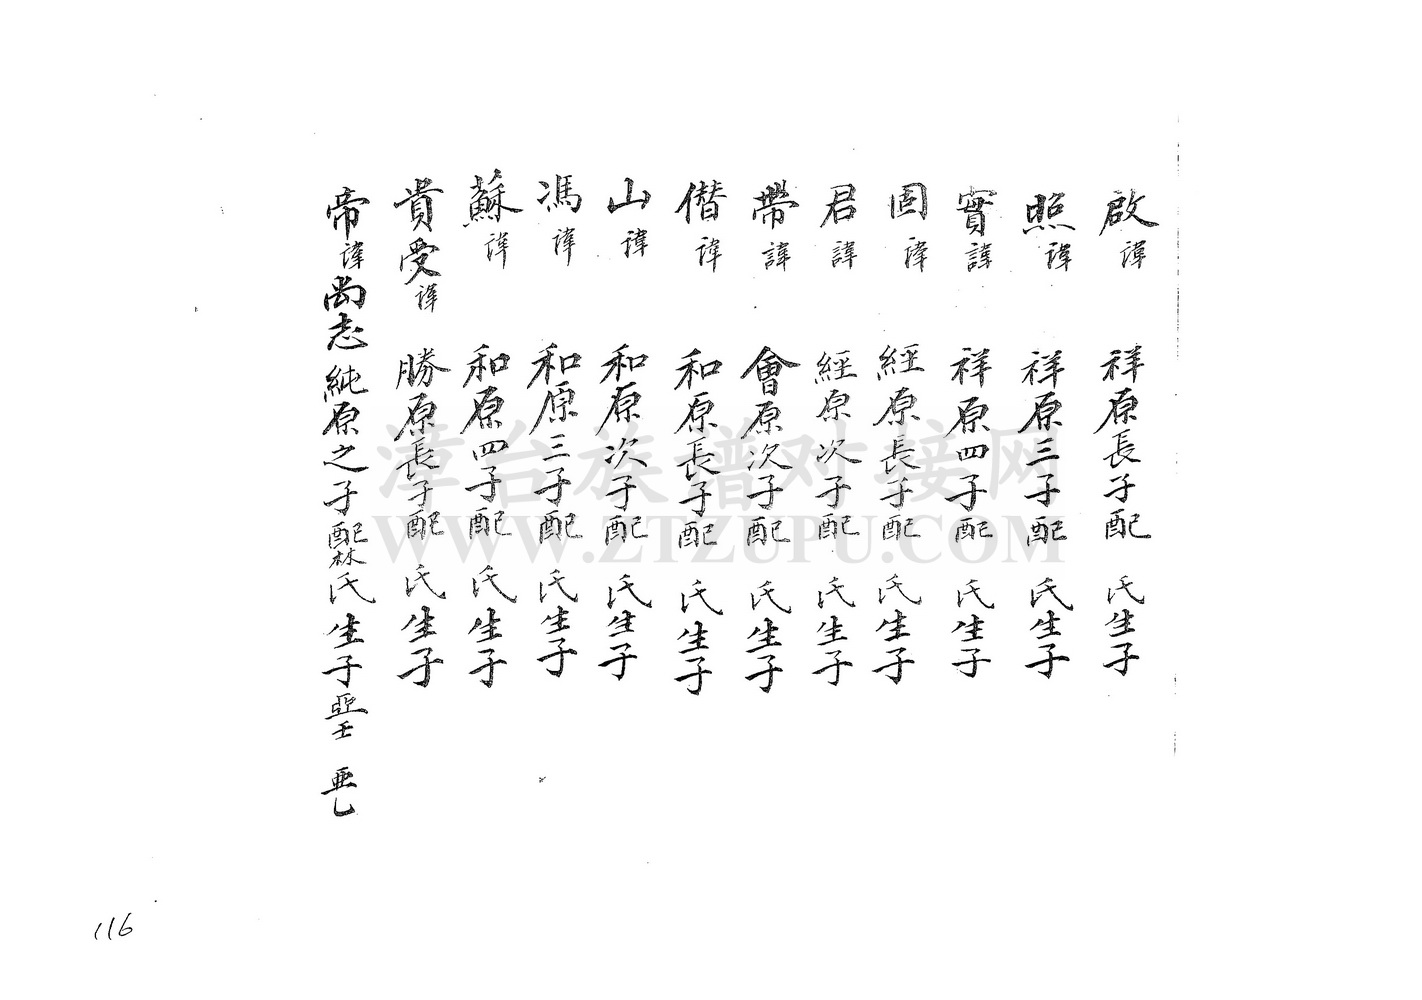 啟諱 祥原長子配 氏生子
照諱 祥原三子配 氏生子
實諱 祥原四子配 氏生子
固諱 經原長子配 氏生子
君諱 經原次子配 氏生子
帶諱 會原次子配 氏生子
僣諱 和原長子配 氏生子
山諱 和原次子配 氏生子
馮諱 和原三子配 氏生子
蘇諱 和原四子配 氏生子
貴受諱 勝原長子配 氏生子
帝諱尚志純原之子配林氏生子亞壬 亜乚
漳台族谱对接网
WWW.ZTZUPU.COM
116